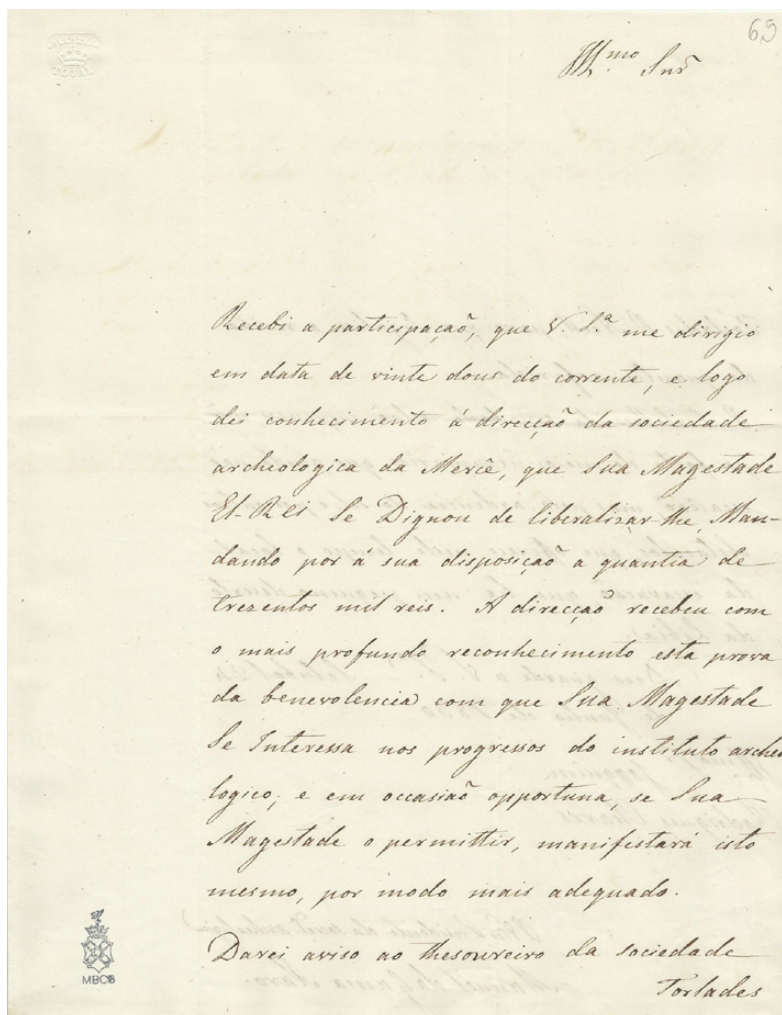 69
Ill.mo Snr
Recebi a participação, que V. S.ª me dirigio
em data de vinte dous do corrente, e logo
dei conhecimento á direcção da sociedade
archeologica da Mercê, que Sua Magestade
El-Rei Se Dignou de liberalizar-lhe, Man-
dando por á sua disposição a quantia de
trezentos mil reis. A direcção recebeu com
o mais profundo reconhecimento esta prova
da benevolencia com que Sua Magestade
Se Interessa nos progressos do instituto archeo
logico, e em occasião opportuna, se Sua
Magestade o permittir, manifestará isto
mesmo, por modo mais adequado.
Darei aviso ao thesoureiro da sociedade
Torlades
MBCB